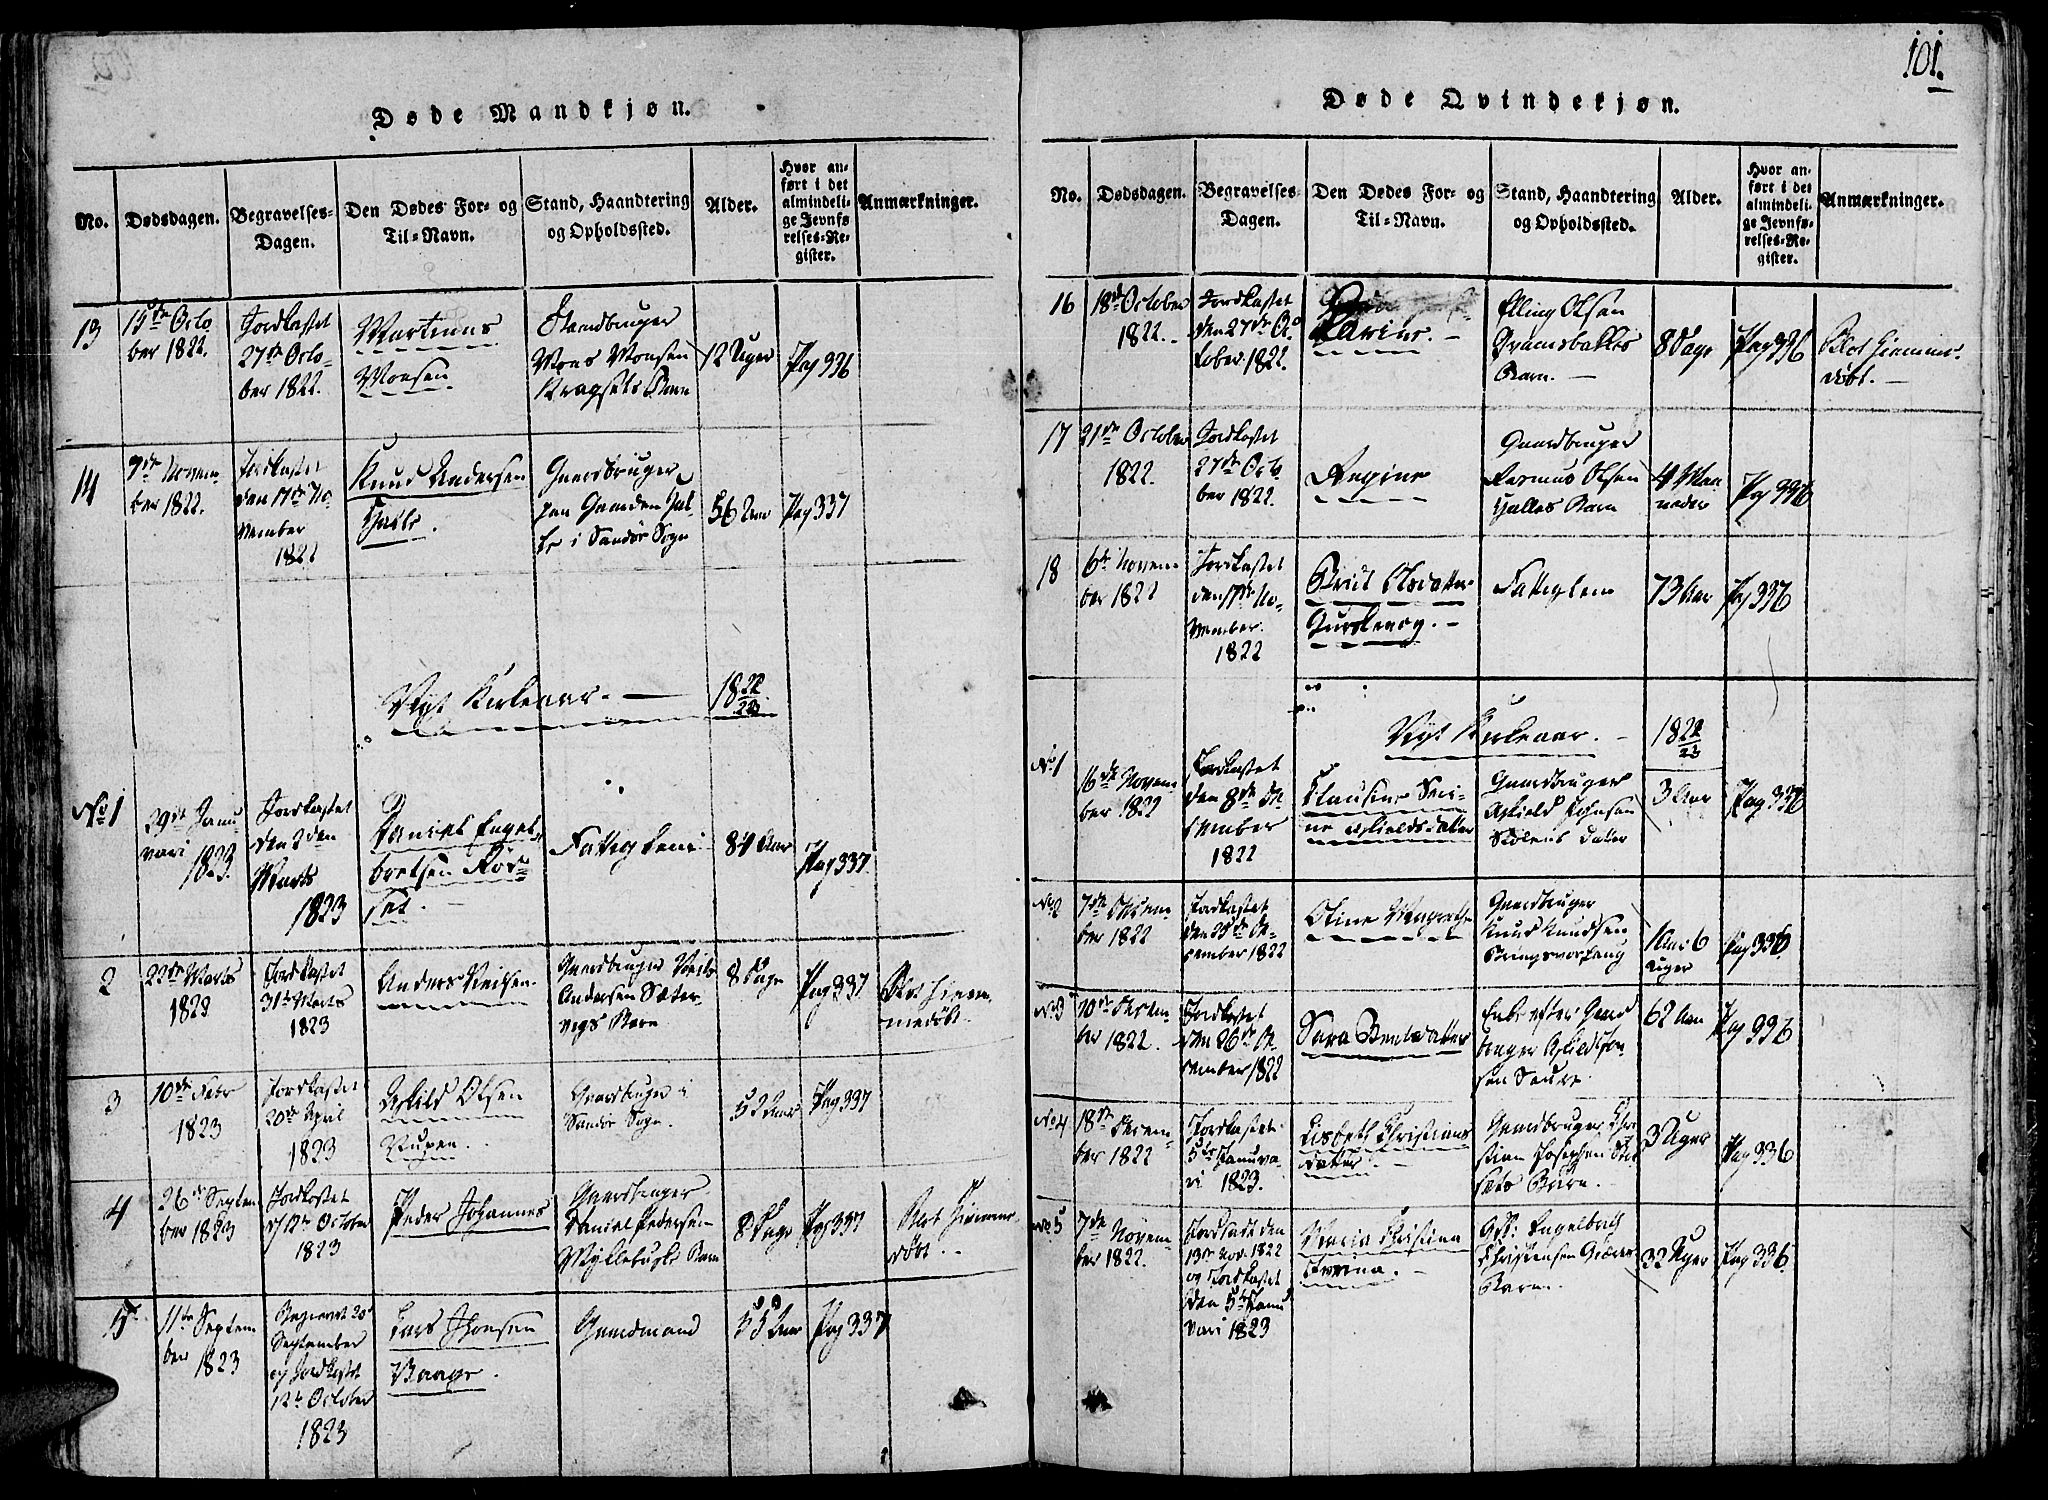 101.
Døde Mandkjøn.
No.
Dødsdagen.
Begravelses-
Dagen.
Den Dødes For- og
Til-Navn.
Stand, Haandtering
og Opholdssted.
Alder.
Hvor an-
ført i det
almindeli-
ge Jevnfø-
relses-Re-
gister.
Anmærkninger.
13
15de Octo
ber 1822.
Jordkastet
27de Octo-
ber 1822.
Martinus
Monsen
Mons Monsen
12 Uger
Pag 336
14
7de Novem-
ber 1822.
Jordkastet
den 17de No-
vember
1822
Knud Andersen
Gaardbruger
i Sandøe Sogn
56 Aar
Pag 337
Nyt Kirkeaar. —
18 22/23
No 1
29de Janu
vari
1823.
Jordkastet
den 2den
Marts
1823
Daniel Engel-
bretsen
set. —
Fatteglem
84 Aar
Pag 337.
2
22de Marts
1823
Jordkastet
31te Marts
1823
Anders Neilsen.
Gaardbruger Neils
Andersen Sæter-
vigs Barn
8 Dage
Pag 337
Blot Hiem-
medøbt.
3
10de Febr
1823
Jordkastet
20de April
1823
Askild Olsen
Gaardbruger i
Sandøe Sogn.
52 Aar
Pag 337
4
26de Septem
ber 1823
Jordkastet
d 12te October
1823
Peder Johannes
Gaardbruger
Daniel Pedersen
Barn
8 Dage
Pag 337
Blot Hiemme-
døbt. -
5
11te Septem
ber
1823
Begravet 20
September
og Jordkastet
12te October
1823
Lars Jonsen
Vaage.
Gaardmand
55 Aar
Pag 337
Døde Qvindekjøn.
No.
Dødsdagen.
Begravelses-
Dagen.
Den Dødes For- og
Til-Navn.
Stand, Haandtering
og Opholdssted.
Alder.
Hvor an-
ført i det
almindeli-
ge Jevnfø-
relses-Re-
gister.
Anmærkninger.
16
18de October
1822. -
Jordkastet
den 27de Oc-
tober 1822.
Karine. -
Elling Olsen
Barn. —
8 Dage
Pag 336
Blot Hiemme-
døbt. —
17
21de October
1822.
Jordkastet
27de Octo
ber 1822.
Regine
Gaardbruger
Rasmus Olsen
Barn
4 Maa
neder
Pag 336
18
6te Novem-
ber 1822
Jordkastet
den 17de No-
vember.
1822
Brit Olsdatter
Fatteglem
73 Aar
Pag 336
Nyt Kirkeaar. -
18 22/23
No 1
16de Novem-
ber 1822
Jordkastet
den 8de De-
cember
1822
Clausine Seri-
ne Askieldsdatter
Gaardbruger
Askield Johnsen
Datter
3 Aar
Pag 336
No 2
7de Decem-
ber 1822
Jordkastet
den 25de De-
cember 1822
Oline Margrethe
Gaardbruger
Knud Knudsen
1 Aar 6
Uger
Pag 336
No 3
10de Decem-
ber 1822.
Jordkastet
den 26de De-
cember 1822
Sara Bentsdatter
Enke efter Gaard
bruger
62 Aar
Pag 336
No 4
18de Decem-
ber 1822
Jordkastet
5te Januva-
ri 1823.
Lisbeth Christians
datter. -
Gaardbruger Chri-
stian Josephsen
sæts Barn. -
3 Uger
Pag 336
No 5
7de
Novem-
ber 1822.
Jordfæstet den
13de Nov. 1822
og Jordkastet
den 5te Janu-
vari 1823
Maria Christina
Engelbrech
Christensen
Barn.
32 Uger
Pag 336.